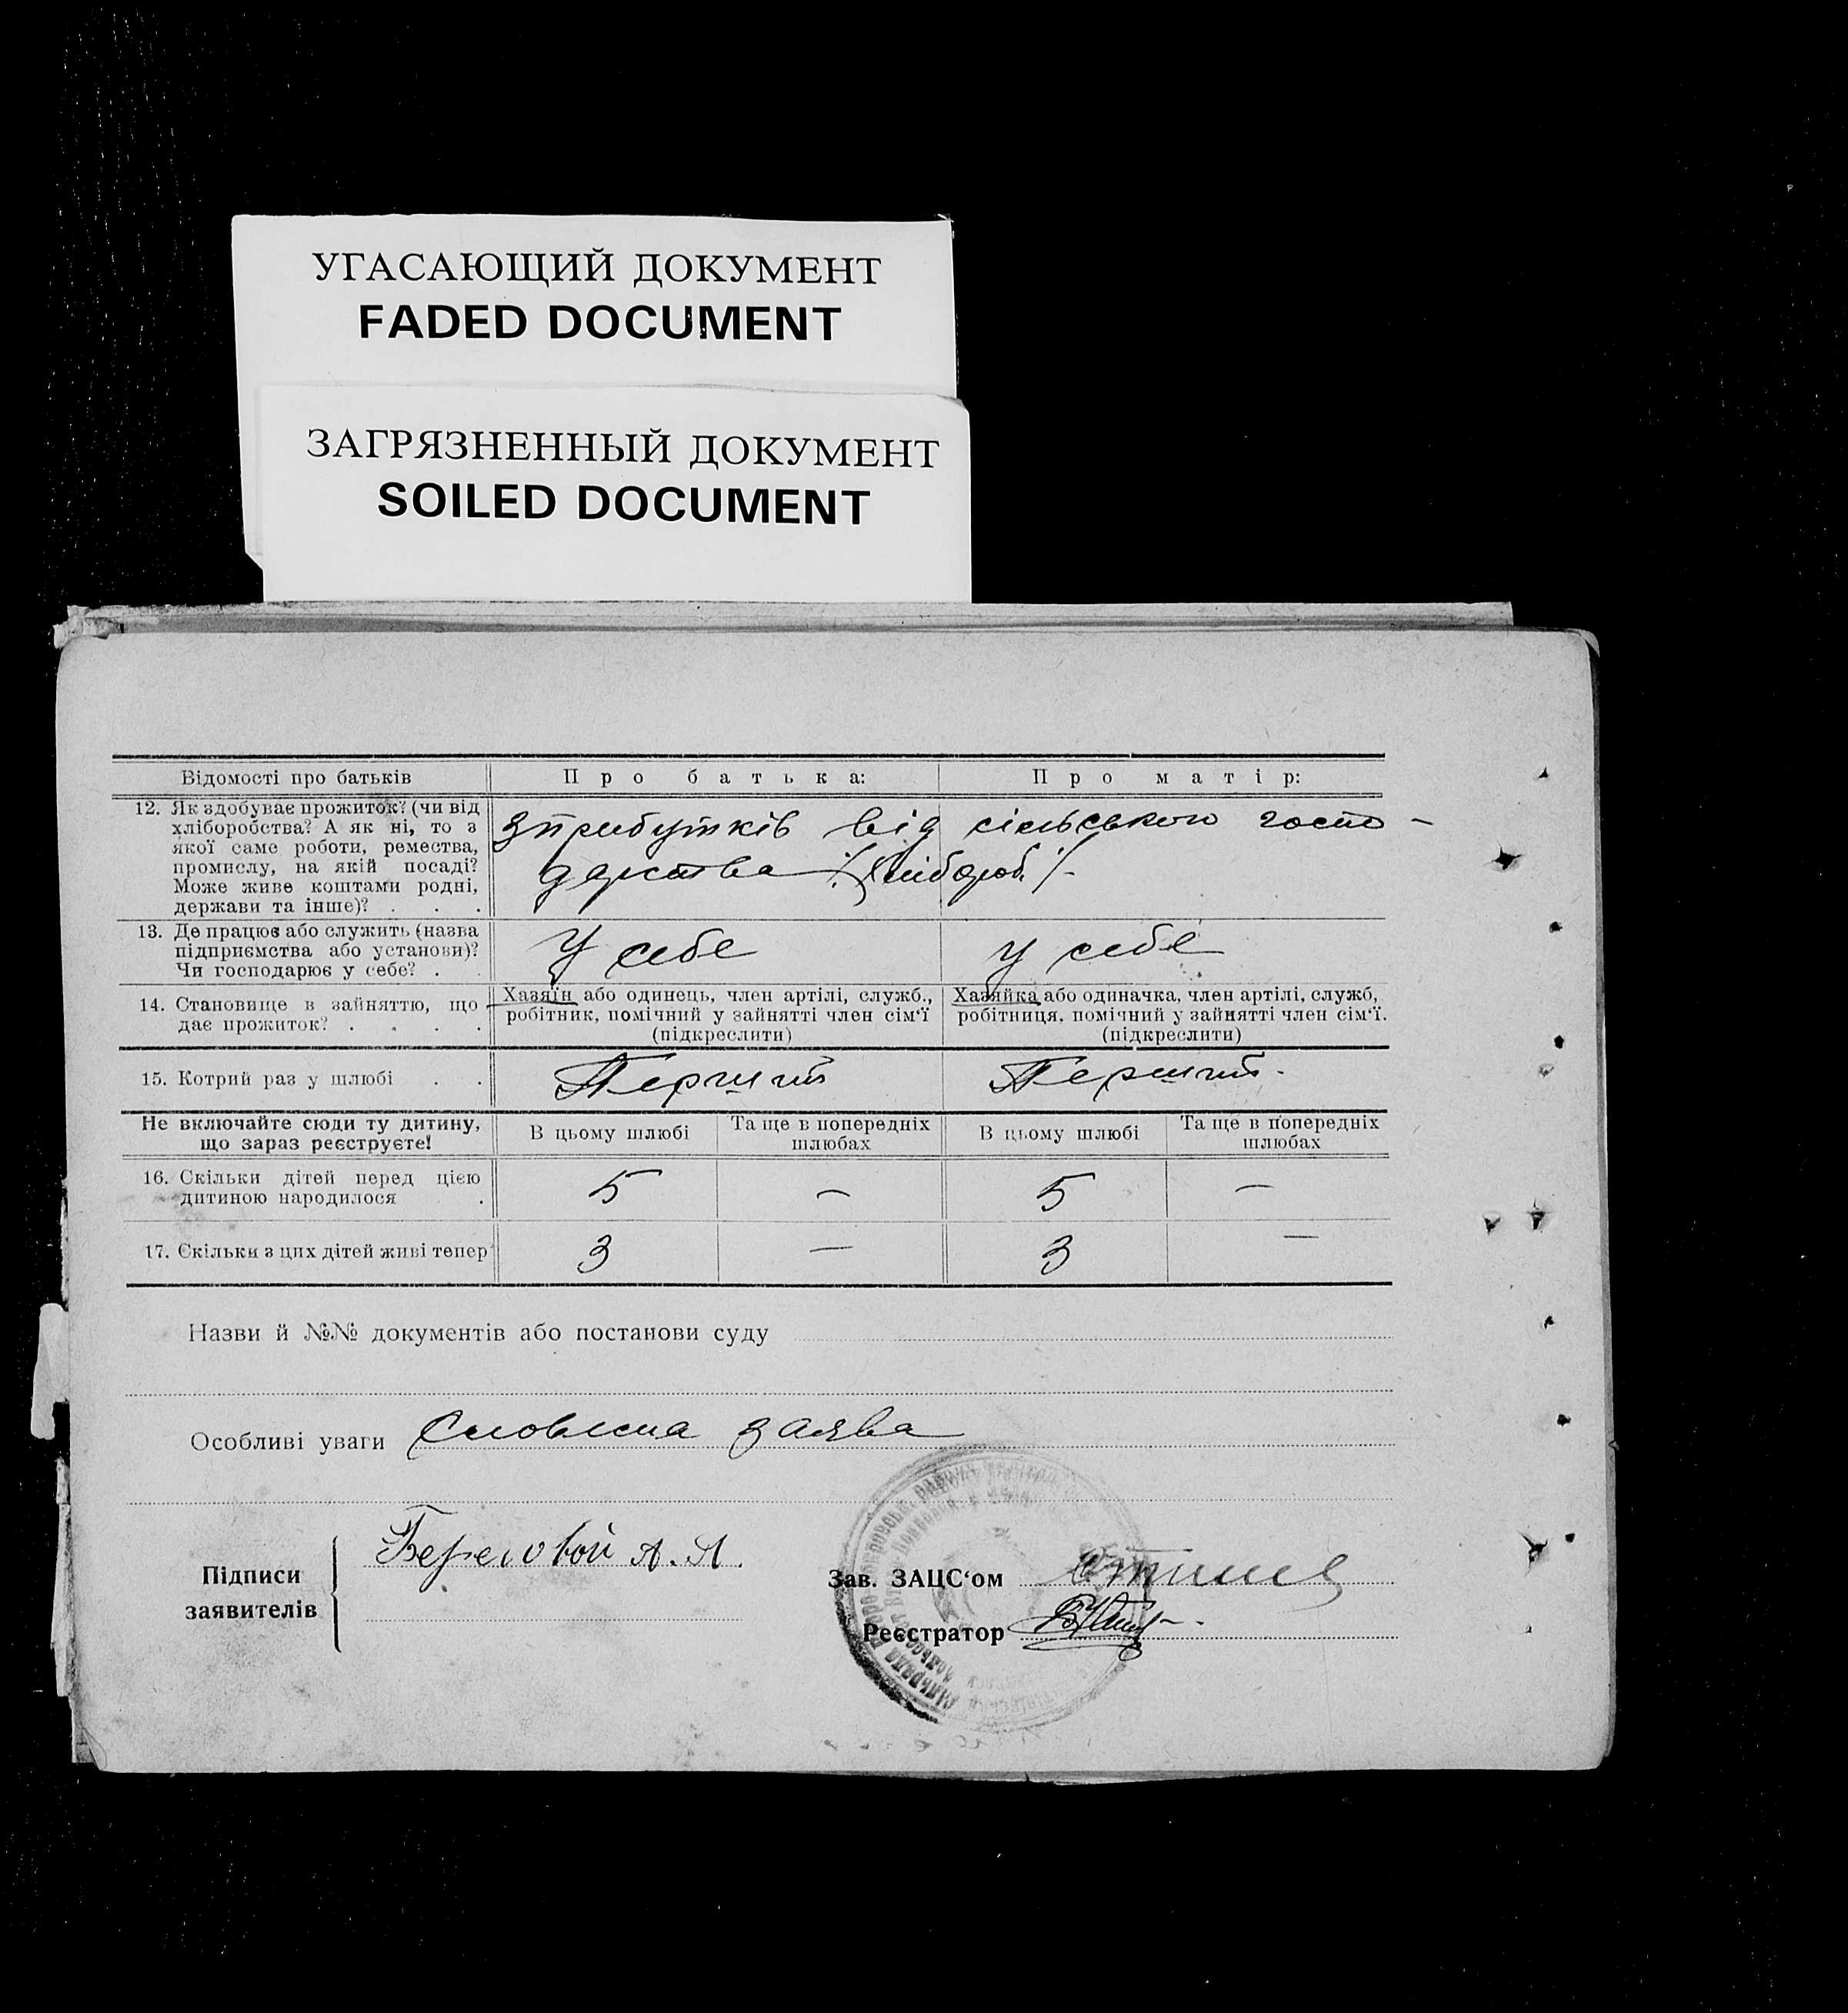 УГАСАЮЩИЙ ДОКУМЕНТ
FADED DOCUMENT
ЗАГРЯЗНЕННЫЙ ДОКУМЕНТ
SOILED DOCUMENT
Відомості про батьків
Про батька:
Про матір:
12. Як здобуває прожиток? (чи від
хліборобства? А як ні, то з
якої саме роботи, ремества,
промислу, на якій посаді?
Може живе коштами родні,
держави та інше)? . . .
з прибутків від сільського госпо-
дарства /хлібороб/-
13. Де працює або служить (назва
підприємства або установи)?
Чи господарює у себе? . .
У себе
у себе
14. Становище в зайняттю, що
дає прожиток? . . . .
Хазяїн або одинець, член артілі, служб.,
робітник, помічний у зайнятті член сім'ї
(підкреслити)
Хазяйка або одиначка, член артілі, служб,
робітниця, помічний у зайнятті член сім'ї.
(підкреслити)
15. Котрий раз у шлюбі . .
Перший
Перший.
Не включайте сюди ту дитину,
що зараз реєструєте!
В цьому шлюбі
Та ще в попередніх
шлюбах
В цьому шлюбі
Та ще в попередніх
шлюбах
16. Скільки дітей перед цією
дитиною народилося .
5
—
5
—
17. Скільки з цих дітей живі тепер
3
—
3
—
Назви й №№ документів або постанови суду
Особливі уваги Словесна заява
Підписи
заявителів
Береговой А. А.
Зав. ЗАЦС'ом
Реєстратор